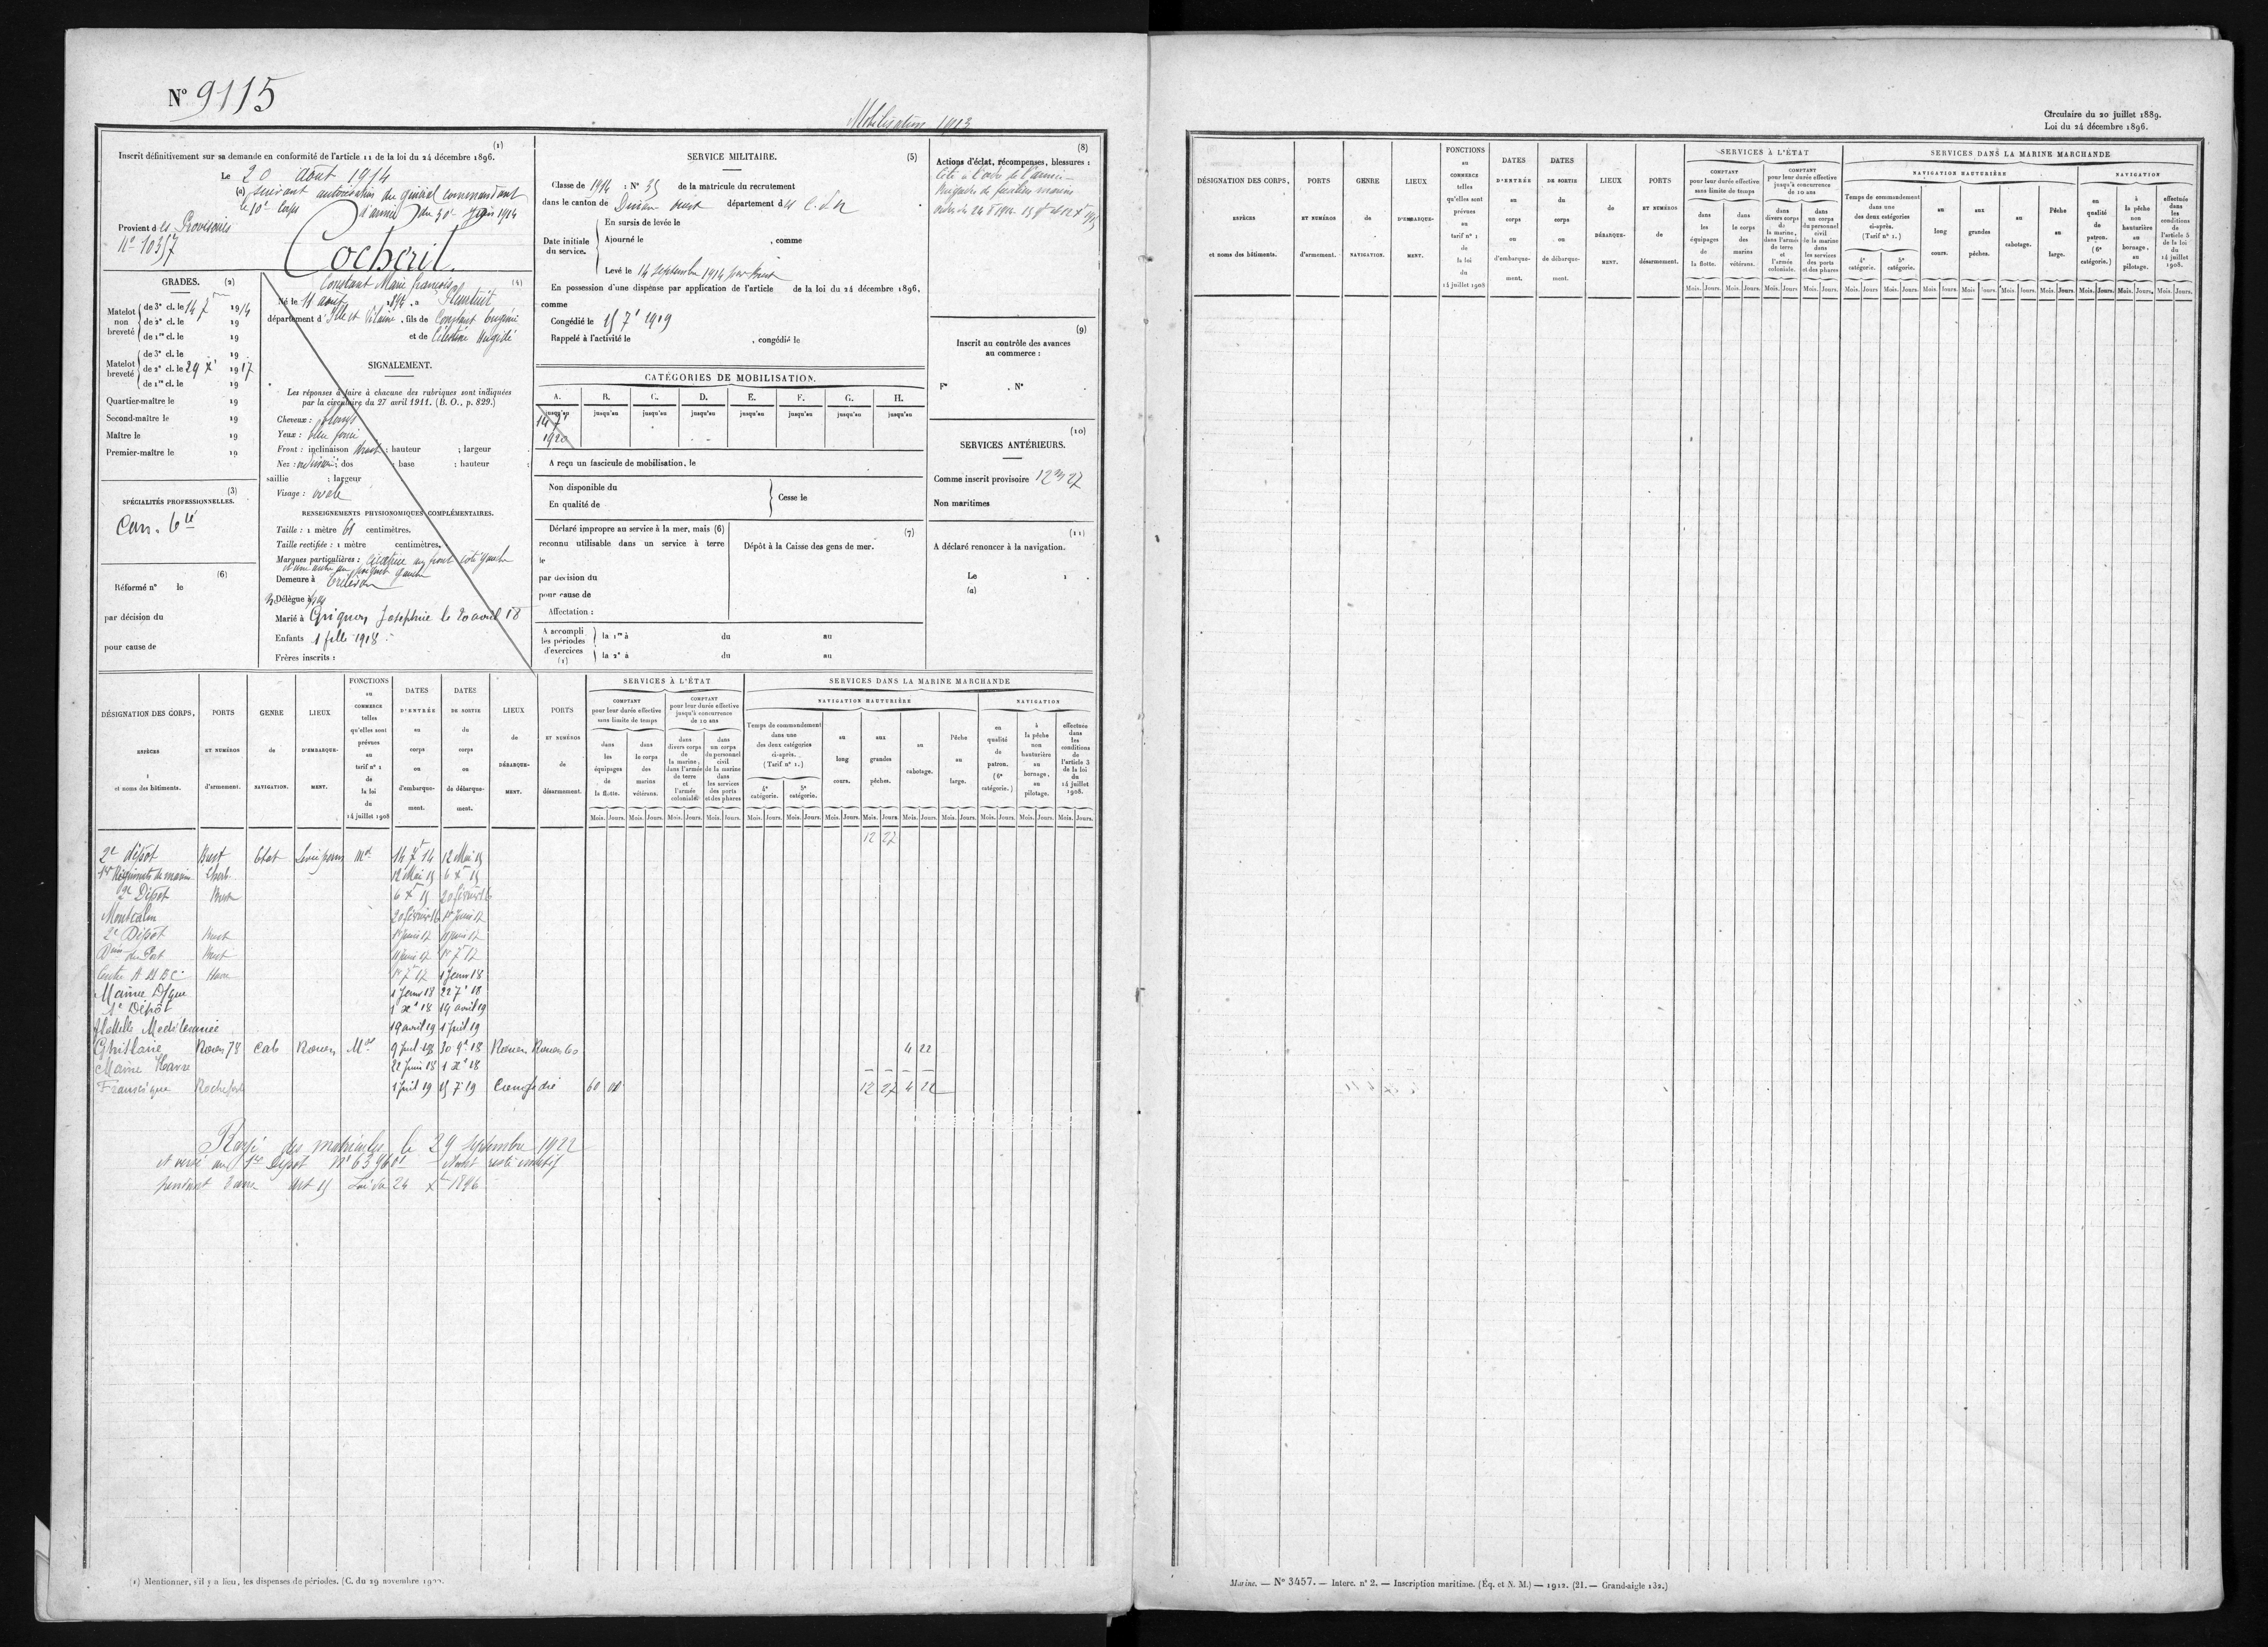 N° 9115
Mobilisation 1913
(1)
Inscrit définitivement sur sa demande en conformité de l'article 11 de la loi du 24 décembre 1896.
Le 20 août 1914
(a) suivant autorisation du général commandant
le 10e corps d'armée du 30 juin 1914
Provient des Provisoires
N° 10357
Cocheril
Constant Marie François
(4)
Né le 11 août 1894, à Pleurtuit
département d'Ille et Vilaine, fils de Constant Eugène
et de Célestine
GRADES. (2)
Matelot non breveté
de 3e cl. le 14 7bre 1914
de 2e cl. le 19
de 1re cl. le 19
Matelot breveté
de 3e cl. le 19
de 2e cl. le 29 Xr 1917
de 1re cl. le 19
Quartier-maître le 19
Second-maître le 19
Maître le 19
Premier-maître le 19
(3)
SPÉCIALITÉS PROFESSIONNELLES.
Can. bté
(6)
Réformé n° le
par décision du
pour cause de
SIGNALEMENT.
Les réponses à faire à chacune des rubriques sont indiquées
par la circulaire du 27 avril 1911. (B. O., p. 829.)
Cheveux : blonds
Yeux : bleu foncé
Front : inclinaison droit ; hauteur ; largeur
Nez : ; dos ; base ; hauteur ;
saillie ; largeur
Visage : ovale
RENSEIGNEMENTS PHYSIONOMIQUES COMPLÉMENTAIRES.
Taille : 1 mètre 61 centimètres.
Taille rectifiée : 1 mètre centimètres.
Marques particulières : cicatrice au front côté gauche
et une autre au poignet gauche
Demeure à Créhen
Délégué à
Marié à Grignon Joséphine le 20 avril 18
Enfants 1 fille 1918
Frères inscrits :
SERVICE MILITAIRE. (5)
Classe de 1914 : N° 35 de la matricule du recrutement
dans le canton de Dinan ouest département d es C. d. N
Date initiale du service.
En sursis de levée le
Ajourné le , comme
Levé le 14 septembre 1914 par Brest
En possession d'une dispense par application de l'article de la loi du 24 décembre 1896,
comme
Congédié le 15 7r 1919
Rappelé à l'activité le , congédié le
CATÉGORIES DE MOBILISATION.
A. B. C. D. E. F. G. H.
jusqu'au jusqu'au jusqu'au jusqu'au jusqu'au jusqu'au jusqu'au jusqu'au
14 7r
1920
A reçu un fascicule de mobilisation, le
Non disponible du
En qualité de
Cesse le
Déclaré impropre au service à la mer, mais (6)
reconnu utilisable dans un service à terre
le
par décision du
pour cause de
Affectation :
(7)
Dépôt à la Caisse des gens de mer.
A accompli les périodes d'exercices (1)
la 1re à du au
la 2e à du au
(8)
Actions d'éclat, récompenses, blessures :
Cité à l'ordre de l'armée
Brigade de fusiliers marins
(9)
Inscrit au contrôle des avances
au commerce :
F° . N°
(10)
SERVICES ANTÉRIEURS.
Comme inscrit provisoire 12m 27
Non maritimes
(11)
A déclaré renoncer à la navigation.
Le 1 .
(a)
DÉSIGNATION DES CORPS, ESPÈCES et noms des bâtiments.
PORTS ET NUMÉROS d'armement.
GENRE de NAVIGATION.
LIEUX D'EMBARQUEMENT.
FONCTIONS au COMMERCE telles qu'elles sont prévues au tarif n° 1 de la loi du 14 juillet 1908
DATES D'ENTRÉE au corps ou d'embarquement.
DATES DE SORTIE du corps ou de débarquement.
LIEUX de DÉBARQUEMENT.
PORTS ET NUMÉROS de désarmement.
SERVICES À L'ÉTAT
COMPTANT pour leur durée effective sans limite de temps
dans les équipages de la flotte.
dans le corps des marins vétérans.
COMPTANT pour leur durée effective jusqu'à concurrence de 10 ans
dans divers corps de la marine, dans l'armée de terre et l'armée coloniale.
dans un corps du personnel civil de la marine dans les services des ports et des phares
SERVICES DANS LA MARINE MARCHANDE
NAVIGATION HAUTURIÈRE
Temps de commandement dans une des deux catégories ci-après. (Tarif n° 1.)
4e catégorie. 5e catégorie.
au long cours. aux grandes pêches. au cabotage. Pêche au large.
NAVIGATION
en qualité de patron. (6e catégorie.)
à la pêche non hauturière au bornage, au pilotage.
effectuée dans les conditions de l'article 5 de la loi du 14 juillet 1908.
Mois. Jours. Mois. Jours. Mois. Jours. Mois. Jours. Mois. Jours. Mois. Jours. Mois. Jours. Mois. Jours. Mois. Jours. Mois. Jours. Mois. Jours. Mois. Jours. Mois. Jours.
12 27
2e dépôt Brest Etat Mot 14 7r 14 12 Mai 15
1er Régiment de marin Cherb. 12 Mai 15 6 Xr 15
2e Dépôt Brest 6 Xr 15 20 février 16
Montcalm 20 février 16 1er Juin 17
2e Dépôt Brest 1er juin 17 11 juin 17
Don du Port Brest 11 Juin 17 1er 7r 17
Centre A M B C Havre 1r 7r 17 1 Janv 18
Marine Dque 1 Janv 18 22 7r 18
1e Dépôt 1 Xr 18 19 avril 19
flottille Mediterranée 19 avril 19 1 Juil 19
Ghislaine Rouen 78 Cab Rouen Mot 9 Juil 18 30 9r 18 Rouen Rouen 60 4 22
Marine Havre 22 Juin 18 1 Xr 18
Francisque Rochefort 1 Juil 19 15 7r 19 Congédié 60 01 12 27 4 22
Rayé des matricules le 29 septembre 1922
et versé au 1er Dépôt N° 63960 resté inactif
pendant 3 ans Art 15 Loi du 24 Xbre 1896
(1) Mentionner, s'il y a lieu, les dispenses de périodes. (C. du 29 novembre
Circulaire du 20 juillet 1889.
Loi du 24 décembre 1896.
DÉSIGNATION DES CORPS, ESPÈCES et noms des bâtiments.
PORTS ET NUMÉROS d'armement.
GENRE de NAVIGATION.
LIEUX D'EMBARQUEMENT.
FONCTIONS au COMMERCE telles qu'elles sont prévues au tarif n° 1 de la loi du 14 juillet 1908
DATES D'ENTRÉE au corps ou d'embarquement.
DATES DE SORTIE du corps ou de débarquement.
LIEUX de DÉBARQUEMENT.
PORTS ET NUMÉROS de désarmement.
SERVICES À L'ÉTAT
COMPTANT pour leur durée effective sans limite de temps
dans les équipages de la flotte.
dans le corps des marins vétérans.
COMPTANT pour leur durée effective jusqu'à concurrence de 10 ans
dans divers corps de la marine, dans l'armée de terre et l'armée coloniale.
dans un corps du personnel civil de la marine dans les services des ports et des phares
SERVICES DANS LA MARINE MARCHANDE
NAVIGATION HAUTURIÈRE
Temps de commandement dans une des deux catégories ci-après. (Tarif n° 1.)
4e catégorie. 5e catégorie.
au long cours. aux grandes pêches. au cabotage. Pêche au large.
NAVIGATION
en qualité de patron. (6e catégorie.)
à la pêche non hauturière au bornage, au pilotage.
effectuée dans les conditions de l'article 5 de la loi du 14 juillet 1908.
Mois. Jours. Mois. Jours. Mois. Jours. Mois. Jours. Mois. Jours. Mois. Jours. Mois. Jours. Mois. Jours. Mois. Jours. Mois. Jours. Mois. Jours. Mois. Jours. Mois. Jours.
Marine. — N° 3457. — Interc. n° 2. — Inscription maritime. (Éq. et N. M.) — 1912. (21. — Grand-aigle 132.)